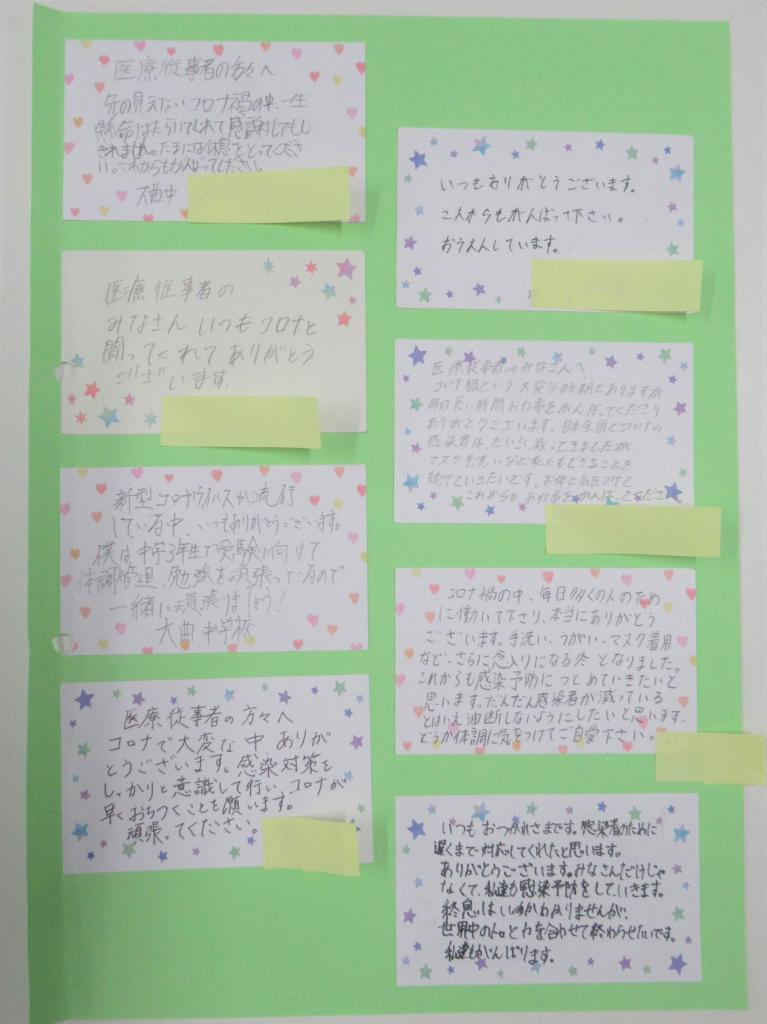 医療従事者の方々へ
先の見えないコロナ禍の中、一生
懸命はたらいてくれて感謝してもし
きれません。たまには休息をとってくださ
い。これからもがんばってください。
大曲中
医療従事者の
みなさん いつもコロナと
闘ってくれて ありがとう
ござ います。
新型コロナウイルスが流行
している中、いつもありがとうございます。
僕は中学3年生で受験に向けて
体調管理、勉強を頑張っているので
一緒に頑張りましょう!
大曲中学校
医療従事者の方々へ
コロナで大変な中、ありが
とうございます。感染対策を
しっかりと意識して行い、コロナが
早くおちつくことを願います。
頑張ってください。
いつもありがとうございます。
これからもがんばって下さい。
おうえんしています。
医療従事者のみなさんへ
コロナ禍という大変な時期でありますが
毎日長い時間お仕事をがんばってくださり
ありがとうございます。日本全国でコロナの
感染者はだいぶ減ってきましたが、
マスク、手洗いなど私にもできることを
続けていきたいです。お体に気をつけて
これからもお仕事をがんばってくださ
コロナ禍の中、毎日多くの人のため
に働いて下さり、本当にありがとう
ございます。手洗い、うがい、マスク着用
など、さらに念入りになる冬となりました。
これからも感染予防につとめていきたいと
思います。だんだん感染者が減っている
とはいえ油断しないようにしたいと思います。
どうか体調に気をつけてご自愛下さい。
いつもおつかれさまです。感染者のために
遅くまで対応してくれたと思います。
ありがとうございます。みなさんだけじゃ
なくて、私達も感染予防をしていきます。
終息はいつかわかりませんが、
世界中の人と力を合わせて終わらせたいです。
私達もがんばります。